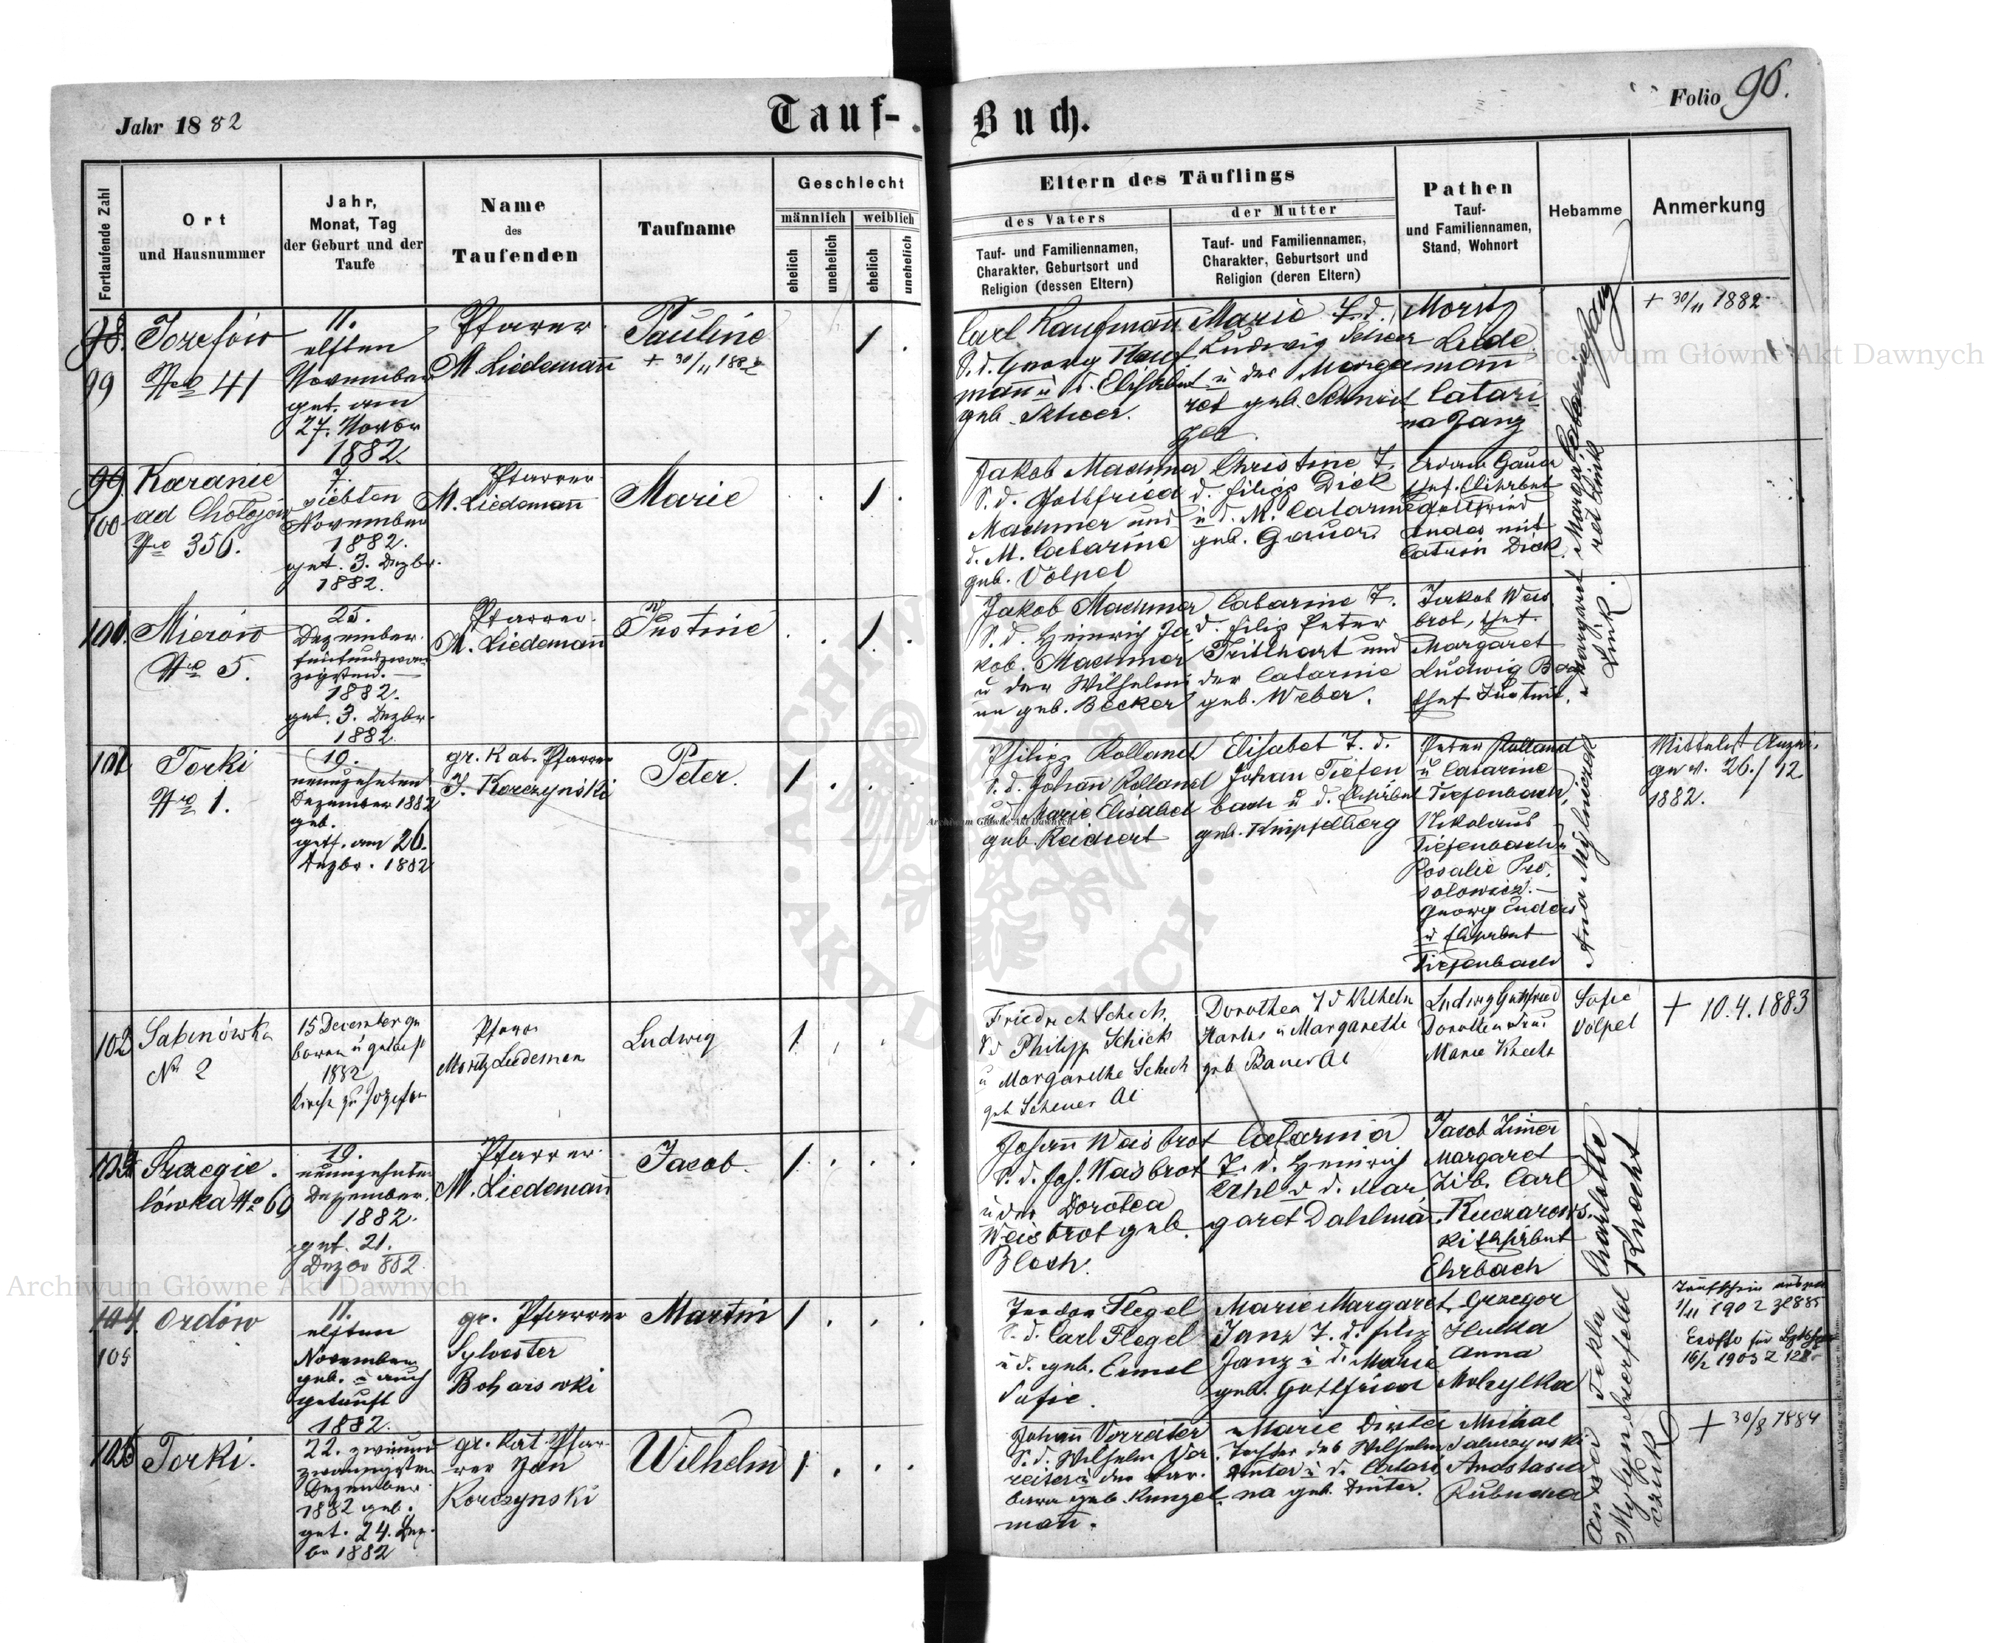 Jahr 1882
Tauf-Buch.
Folio 96.
Fortlaufende Zahl
Ort
und Hausnummer
Jahr,
Monat, Tag
der Geburt und der
Taufe
Name
des
Taufenden
Taufname
Geschlecht
männlich
weiblich
ehelich
unehelich
ehelich
unehelich
Eltern des Täuflings
des Vaters
Tauf- und Familiennamen,
Charakter, Geburtsort und
Religion (dessen Eltern)
der Mutter
Tauf- und Familiennamen,
Charakter, Geburtsort und
Religion (deren Eltern)
Pathen
Tauf-
und Familiennamen,
Stand, Wohnort
Hebamme
Anmerkung
98.
99
Jozefów
Nro 41
11.
elften
November
get. am
27. Novbr
1882.
Pfarrer
M. Liedemann
Pauline
+ 30/11 1882
1
Carl Kaufmann
S. d. Georg Kauf
mann u. d. Elisabet
geb. Scheer.
Marie T. d.
Ludwig Scheer
u der Marga
ret geb. Schmidt
Moritz
Liede
mann
Catari
na Ganz
+ 30/11 1882
99
100
Karanie
ad Cholojow
Nro 356.
7.
siebten
November
1882.
get. 3. Dezbr.
1882.
Pfarrer
M. Liedemann
Marie
1
Jakob Machmer
S. d. Gottfried
Machmer und
d. M. Catarine
geb. Volpel
Christine T.
d. Filip Dick
u. d. M. Catarine
geb. Gauer.
Adam Gauer
Gottfried
mit
Catrin Dick
101.
Mierów
Nro 5.
25.
Dezember
1882.
get. 3. Dezbr.
1882.
Pfarrer
M. Liedemann
Justine
1
Jakob Machmer
S. d. Heinrich Ja
kob. Machmer
u der Wilhelmi
ne geb. Becker
Catarine T.
d. Filip Peter
und
der Catarine
geb. Weber.
Jakob Weis
brot,
Margaret
Ludwig
Torki
Nro 1.
19.
neunzehnten
Dezember 1882
geb.
get. am 26.
Dezbr. 1882
gr. Kat. Pfarrer
J. Korczyński
Peter.
1
Philipp Rolland
S. d. Johann Rolland
u d Marie Elisabet
geb. Reichert
Elisabet T. d.
Johan Tiefen
bach u d. Elisabet
geb. Knipfelberg
Peter Rolland
u Catarine
Tiefenbach,
Nikolaus
Tiefenbach u
Rosalie Pro
Georg Enders
u Elisabet
Tiefenbach
Mittelst Anzei
ge v. 26./12
1882.
102
Sabinówka
No 2
15 December ge
boren u getauft
1882
Kirche zu Jozefow
Pfarrer
Moritz Liedeman
Ludwig
1
Friedrich Schick
S d Philipp Schick
u Margarethe Schick
geb Scheuer
Dorothea T d Wilhelm
u Margarethe
geb Bauer
Ludwig Gottfried
Dorothea
Marie Knecht
Sofie
Volpel
+ 10.4.1883
lówka No 69
19.
neunzehnten
Dezember.
1882.
get. 21.
Dezbr 882.
Pfarrer
M. Liedemann
Jacob.
1
Johann Weisbrot
S. d. Joh. Weisbrot
u der Dorotea
Weisbrot geb.
Bloch.
Catarina
T. d. Heinrich
u d. Mar
garet Dahlman
Jacob Zimer
Margaret
Carl
Kuczarows
ki Elisabet
Ehrbach
Charlotte
Knecht
104
105
Ordów
11.
elften
November
geb. u auch
getauft
1882.
gr. Pfarrer
Sylvester
Martin
1
Teodor Flegel
S. d. Carl Flegel
u d. geb. Ermel
Sofie.
Marie Margaret
Janz T. d. Filip
Janz u d. Marie
geb. Gottfried
Grzegor
Hulka
Anna
Mohylka
Tekla
1/11 1902
Torki.
22. zweiund
zwanzigsten
Dezember
1882 geb.
get. 24. De
br 1882
gr. Kat. Pfar
rer Jan
Korczynski
Wilhelm
1
Johan Vorreiter
S. d. Wilhelm Vor
reiter u der Bar
bara geb. Kungel
man.
Marie Dinter
Tochter des Wilhelm
Dinter u. d. Catari
na geb. Dinter.
Mihal
Anastasia
+ 30/8 1884
Archiwum Główne Akt Dawnych
Archiwum Główne Akt Dawnych
Archiwum Główne Akt Dawnych